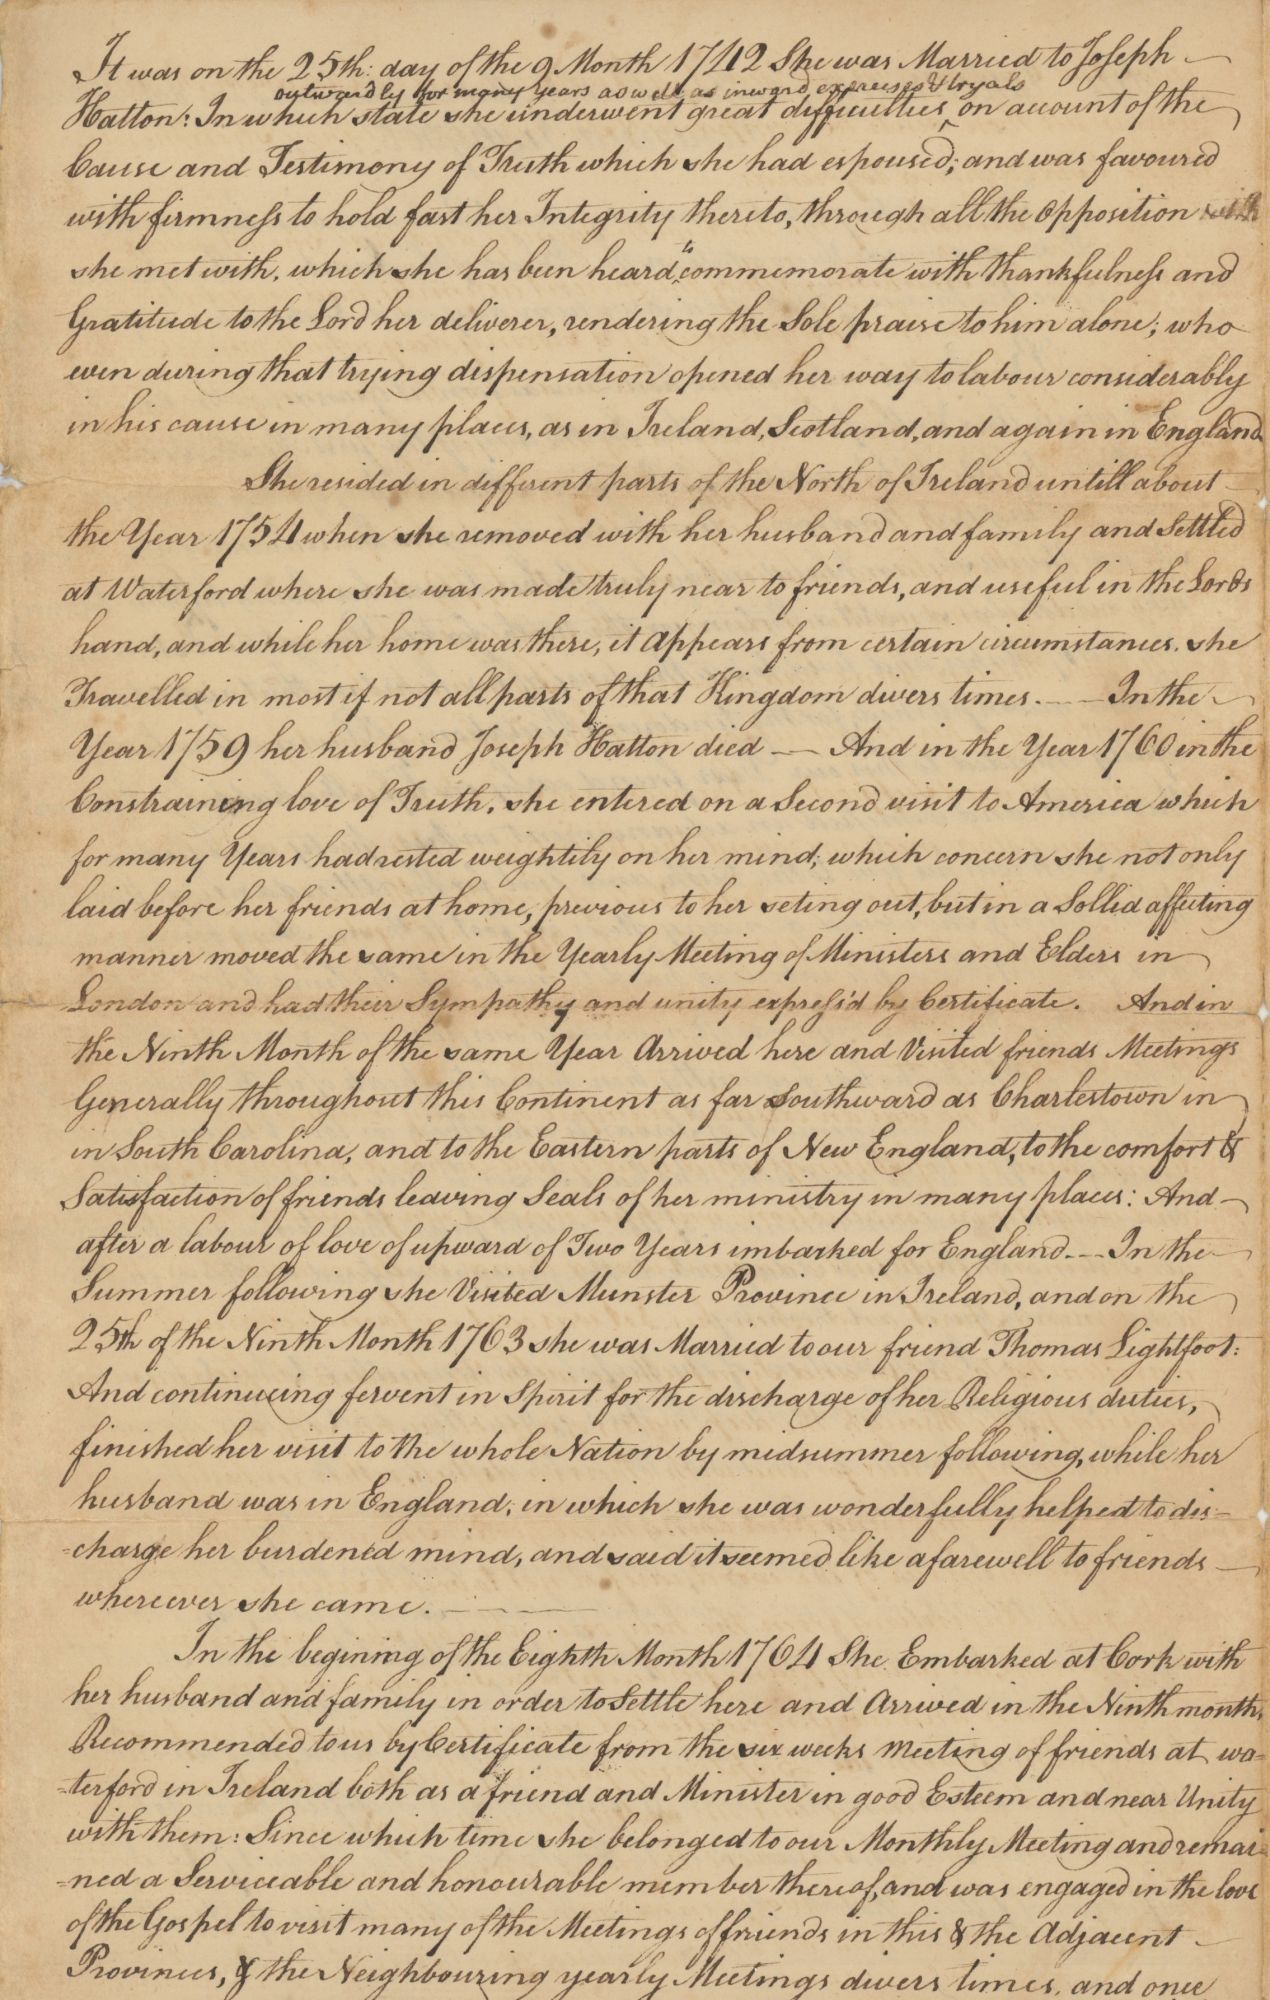 It was on the 25th: day of the 9 Month 1742 She was Married to Joseph
outwardly for many years as well as inward exercises & tryals
Hatton: In which state she underwent great difficulties ^ on account of the
Cause and Testimony of Truth which she had espoused; and was favoured
with firmness to hold fast her Integrity thereto, through all the opposition
she met with, which she has been heard " commemorate with thankfulness and
Gratitude to the Lord her deliverer, rendering the Sole praise to him alone; who
even during that trying dispensation opened her way to labour considerably
in his cause in many places, as in Ireland, Scotland, and again in England
She resided in different parts of the North of Ireland untill about
the Year 1754 when she removed with her husband and family and Settled
at Waterford where she was made truly near to friends, and useful in the Lords
hand, and while her home was there, it appears from certain circumstances. she
Travelled in most if not all parts of that Kingdom divers times. — In the
Year 1759 her husband Joseph Hatton died — And in the Year 1760 in the
Constraining love of Truth, she entered on a Second visit to America which
for many Years had rested weightily on her mind; which concern she not only
laid before her friends at home, previous to her seting out, but in a Sollid affecting
manner moved the same in the Yearly Meeting of Ministers and Elders in
London and had their Sympathy and unity express'd by Certificate. And in
the Ninth Month of the same Year Arrived here and Visited friends Meetings
Generally throughout this Continent as far Southward as Charlestown in
in South Carolina, and to the Eastern parts of New England, to the comfort &
Satisfaction of friends leaving Seals of her ministry in many places: And
after a labour of love of upward of Two Years imbarked for England. — In the
Summer following she Visited Munster Province in Ireland, and on the
25th of the Ninth Month 1763 she was Married to our friend Thomas Lightfoot:
And continueing fervent in Spirit for the discharge of her Religious duties,
finished her visit to the whole Nation by midsummer following, while her
husband was in England; in which she was wonderfully helped to dis-
-charge her burdened mind, and said it seemed like a farewell to friends
whereever she came. —
In the begining of the Eighth Month 1764 She Embarked at Cork with
her husband and family in order to Settle here and Arrived in the Ninth month,
Recommended to us by Certificate from the six weeks Meeting of friends at wa-
-terford in Ireland both as a friend and Minister in good Esteem and near Unity
with them: Since which time she belonged to our Monthly Meeting and remai-
-ned a Serviceable and honourable member thereof, and was engaged in the love
of the Gospel to visit many of the Meetings of friends in this & the Adjacent
Provinces, & the Neighbouring yearly Meetings divers times, and once